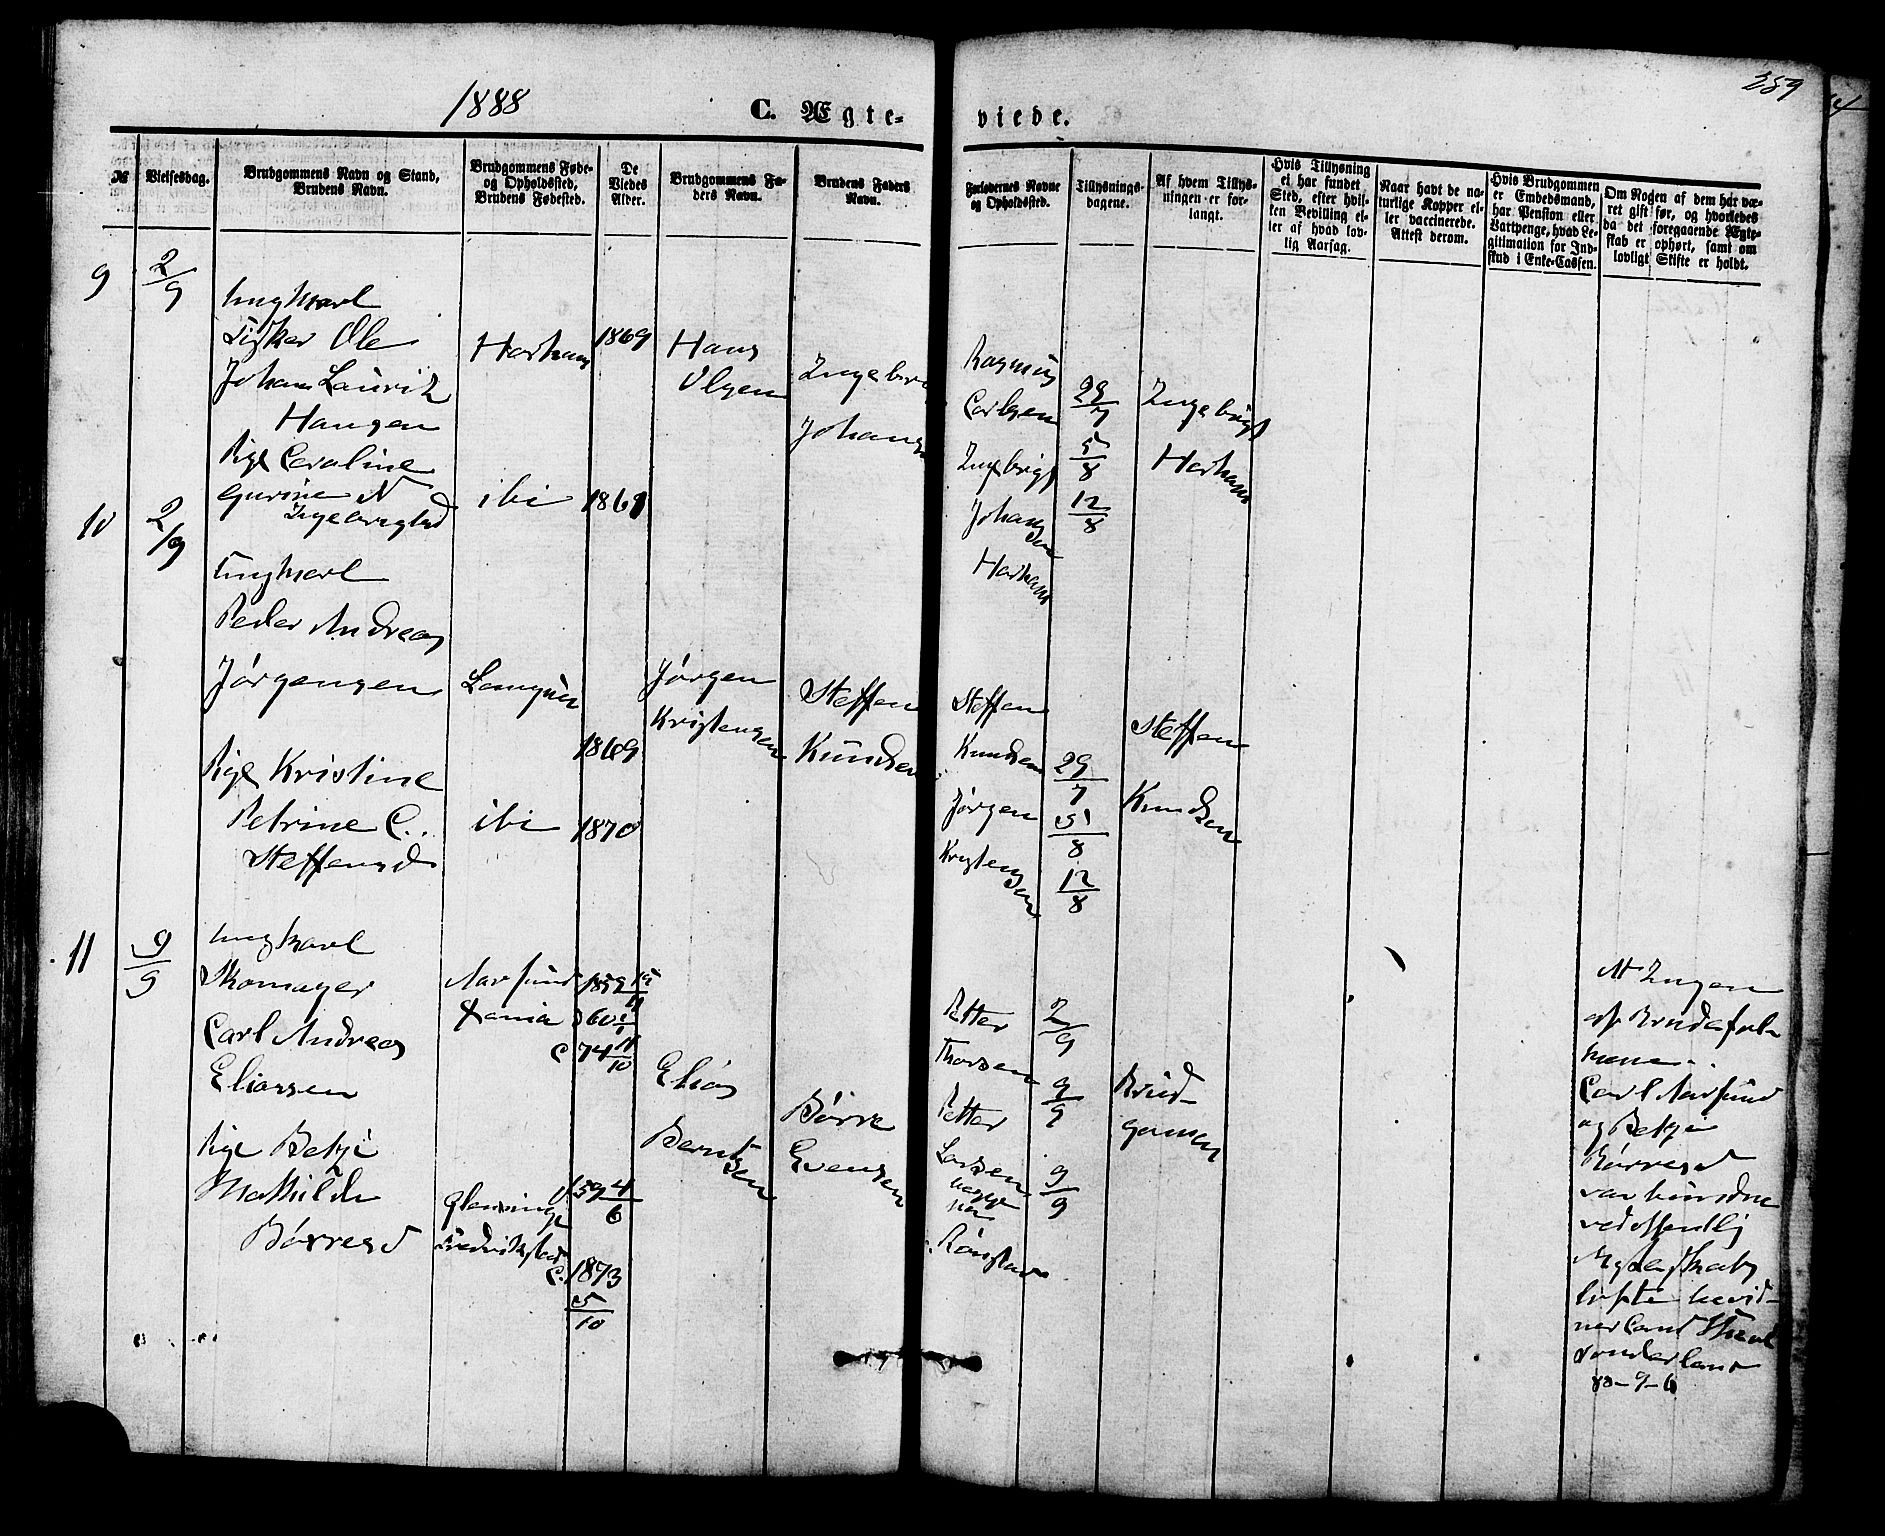 1888
C. Ægte-
viede.
259
№
Vielsesdag.
Brudgommens Navn og Stand,
Brudens Navn.
Brudgommens Føde-
og Opholdssted,
Brudens Fødested.
De
Viedes
Alder.
Brudgommens Fa-
ders Navn.
Brudens Faders
Navn.
Forlovernes Navne
og Opholdssted.
Tillysnings-
dagene.
Af hvem Tillys-
ningen er for-
langt.
Hvis Tillysning
ei har fundet
Sted, efter hvil-
ken Bevilling el-
ler af hvad lov-
lig Aarsag.
Naar havt de na-
turlige Kopper el-
ler vaccinerede.
Attest derom.
Hvis Brudgommen
er Embedsmand,
har Pension eller
Vartpenge, hvad Le-
gitimation for Ind-
skud i Enke-Cassen.
Om Nogen af dem har væ-
ret gift før, og hvorledes
da det foregaaende Ægte-
skab er ophørt, samt om
lovligt Skifte er holdt.
9
2/9
Ungkarl
Fisker Ole
Johan Lauritz
Hansen
Pige Caroline
Gurine N
Ingebrigtsd
Harhams
ibi
1869
1861
Hans
Olsen
Johans
Rasmus
Carlsen
Ingebrigt
Johan
sen
Harhams
29/7
5/8
12/8
Ingebrigt
Harhams
10
2/9
Ungkarl
Peder Andreas
Jørgensen
Pige Kristine
Petrine C.
Steffensd
ibi
1869
1870
Jørgen
Kristensen
Steffen
Knudsen
Steffen
Knudsen
Jørgen
Kristen
sen
29/7
5/8
12/8
Steffen
Knudsen
11
9/9
Ungkarl
Skomager
Carl Andreas
Eliassen
Pige Betzi
Mathilde
Børresd
Aarsund
1859
74
59 4/6
Fredrikstad
C. 1873
5/10
Elias
Bernt
sen
Børre
Evensen
Petter
Thorsen
Petter
Larsen
begge
2/9
9/9
9/9
Brud-
gommen
At Ingen
af Brudefol-
kene
Carl Aarsund
og Betzi
Børresd
var
ved offentlig
Sunderland
88-9-6